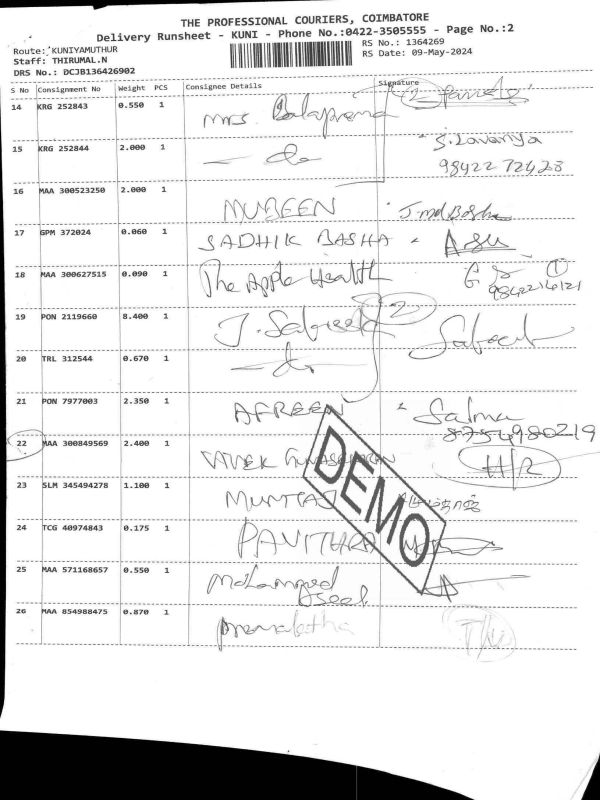 THE PROFESSIONAL COURIERS, COIMBATORE
Delivery Runsheet - KUNI - Phone No.:0422-3505555 - Page No.:2
Route: KUNIYAMUTHUR
RS No.: 1364269
Staff: THIRUMAL.N
RS Date: 09-May-2024
DRS No.: DCJB136426902
S No Consignment No Weight PCS Consignee Details Signature
14 KRG 252843 0.550 1 Mrs. Balaprema
15 KRG 252844 2.000 1 S. Lavanya
98422 72428
16 MAA 300523250 2.000 1 MUBEEN J.md Basha
17 GPM 372024 0.060 1 SADHIK BASHA
18 MAA 300627515 0.090 1 The Apple Health
19 PON 2119660 8.400 1
20 TRL 312544 0.670 1
21 PON 7977003 2.350 1 AFREEN Salma
8754980219
22 MAA 300849569 2.400 1 VIVEK GUNASEKARAN H/R
23 SLM 345494278 1.100 1 MUMTAJ
24 TCG 40974843 0.175 1 PAVITHRA
25 MAA 571168657 0.550 1 Mohammed
26 MAA 854988475 0.870 1 Premalatha
DEMO